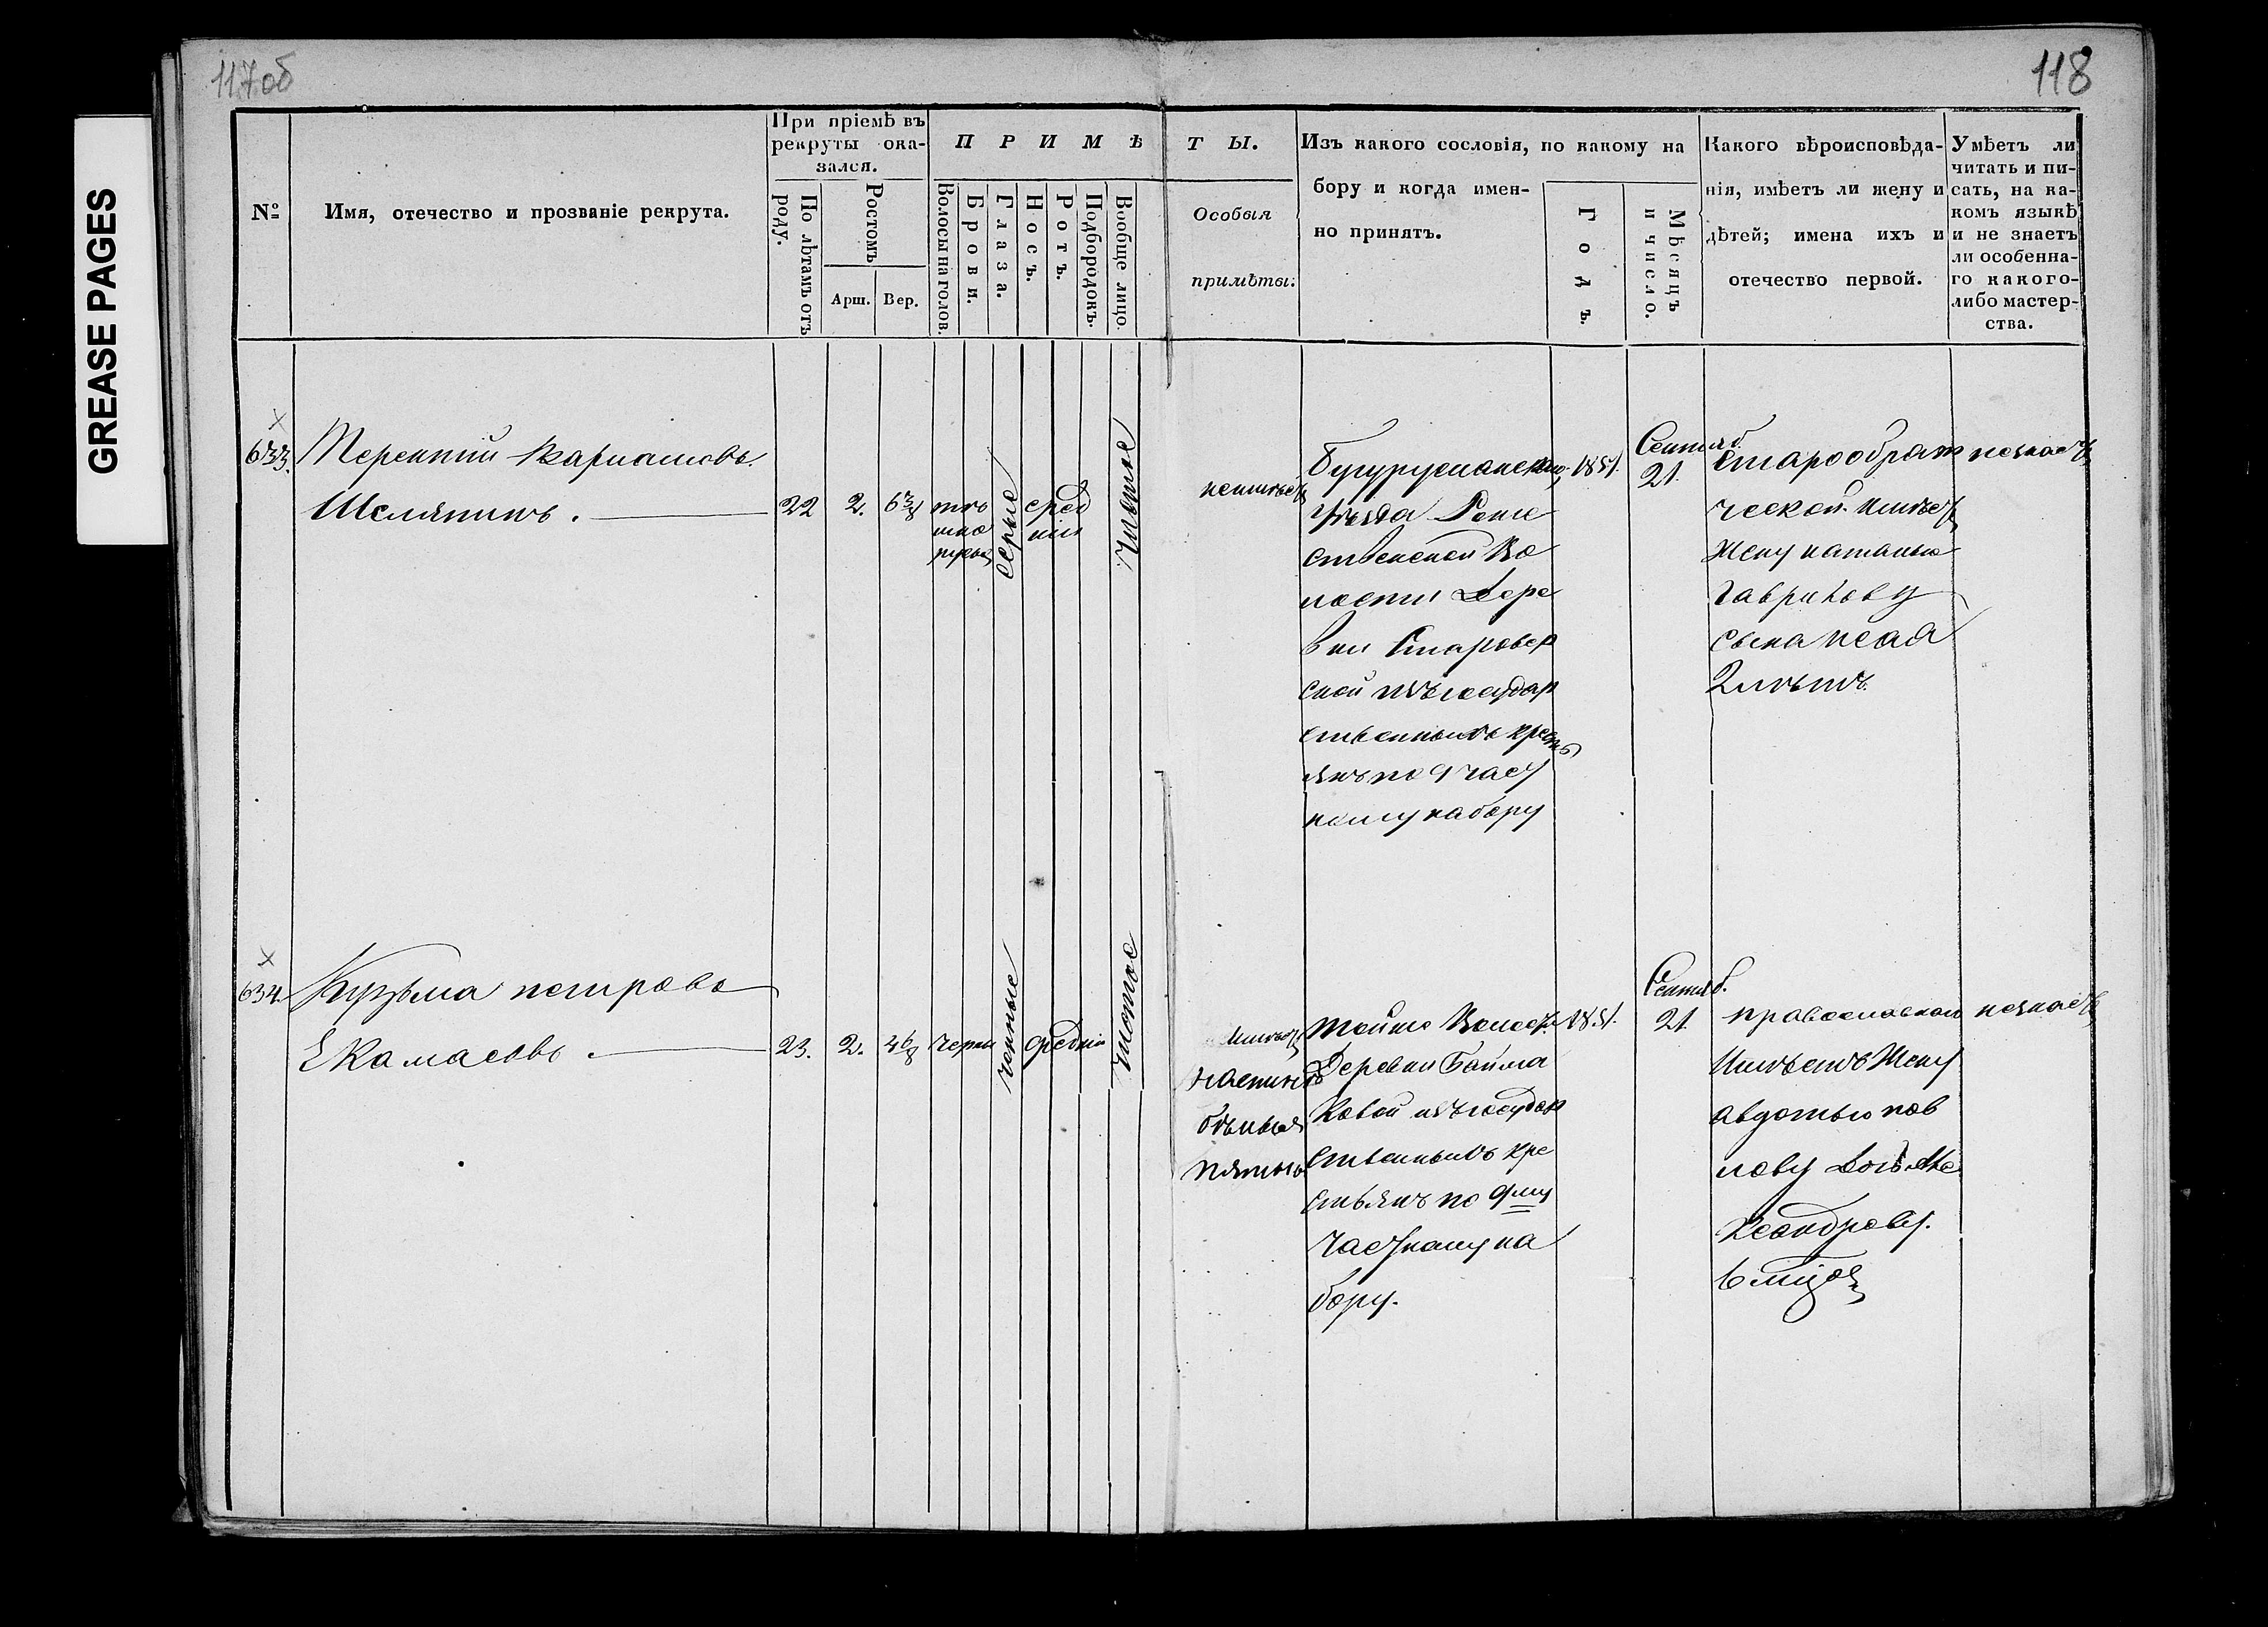 117об
118
GREASE PAGES
№
Имя, отечество и прозваніе рекрута.
При пріемѣ въ
рекруты ока-
зался.
По лѣтамъ отъ
роду.
Ростомъ
Арш.
Вер.
ПРИМѢТЫ.
Волосы на голов.
Брови.
Глаза.
Носъ.
Ротъ.
Подбородокъ.
Вообще лицо.
Особыя
примѣты:
Изъ какого сословія, по какому на
бору и когда имен-
но принятъ.
Годъ.
Мѣсяцъ
и число.
Какого вѣроисповѣда-
нія, имѣетъ ли жену и
дѣтей; имена ихъ и
отечество первой.
Умѣетъ ли
читать и пи-
сать, на ка-
комъ языкѣ
и не знаетъ
ли особенна-
го какого-
либо мастер-
ства.
633.
Терентий
22
2.
6 3/8
темно
русы
серые
сред
нии
чистое
неимѣет
Бугурусланскаго
уѣзда
ственской Во
лости Дере
вни Старовер
ской изъ государ
ственныхъ кресть
янъ по 9 част
ному набору
1851.
Сентяб.
21.
Старообрят
ческой. Имѣет
жену наталью
Гаврилову
сына
2 лѣтъ.
незнаетъ
634.
Кузьма петровъ
Екамасовъ.
23.
2.
4 6/8
черны
черные
средніи
чистое
имѣет
наспинѣ
бѣлыя
пятны
тойже Волост.
Деревни Байма
ковой изъ государ
ственныхъ кре
стьянъ по 9му
частному на
бору.
1851.
Сентяб.
21.
православнаго
Имѣетъ жену
авдотью пав
лову Дочь Але
ксандру.
незнаетъ